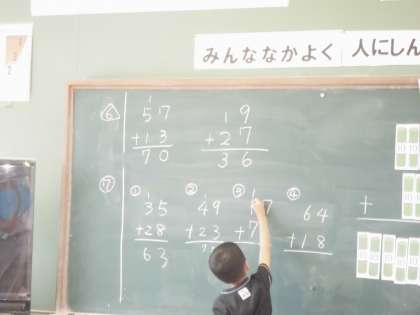 みんななかよく 人にしん
⑥ 57 19
+13 +27
70 36
⑦ ① ② ③ ④
35 49 7 64
+28 +23 +7 +18
63
+